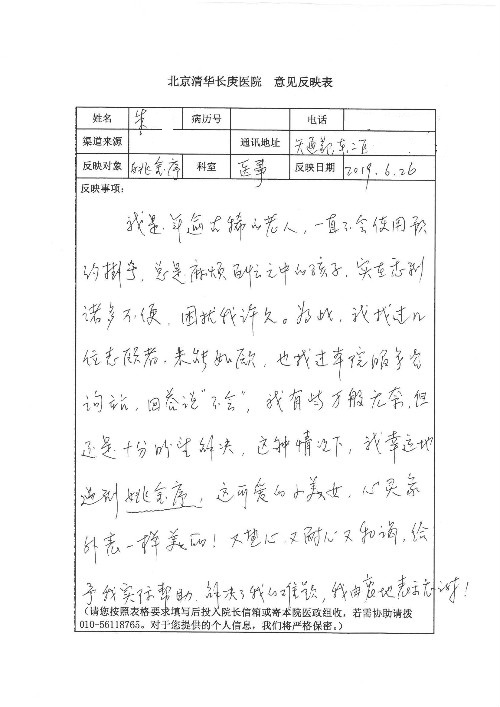 北京清华长庚医院 意见反映表
姓名 朱 病历号 电话
渠道来源 通讯地址 天通苑东二区
反映对象 姚金序 科室 医事 反映日期 2019.6.26
反映事项：
我是年逾古稀的老人，一直不会使用预
约掛号，总是麻烦百忙之中的孩子，实在感到
诸多不便，困扰我许久。为此，我找过几
位志愿者，未能如愿，也找过本院服务台
询站，回答说“不会”，我有些万般无奈，但
还是十分盼望解决，这种情况下，我幸运地
遇到姚金序，这可爱的小美女，心灵象
外表一样美丽！又热心又耐心又和谐，给
予我实际帮助，解决了我的难题，我由衷地表示感谢！
(请您按照表格要求填写后投入院长信箱或寄本院医政组收，若需协助请拨
010-56118765。对于您提供的个人信息，我们将严格保密。)